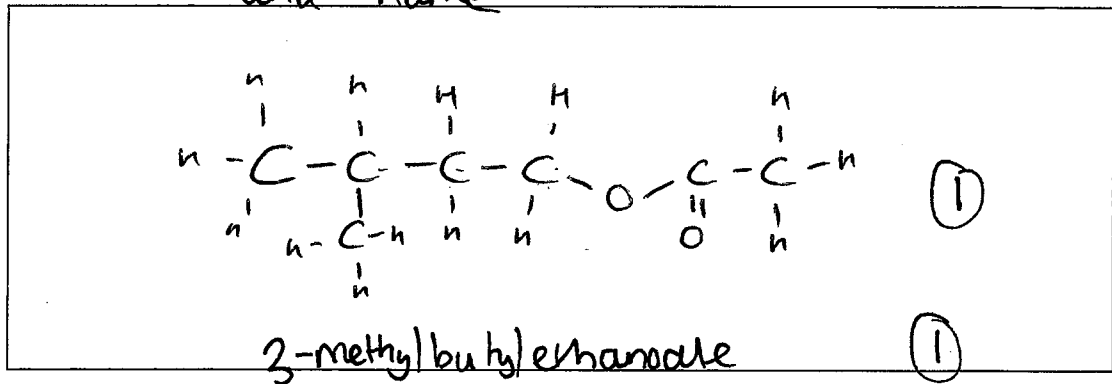 and name
H H H H H
H - C - C - C - C - O - C - C - H
H H - C - H H H O H
H
①
3-methylbutylethanoate ①